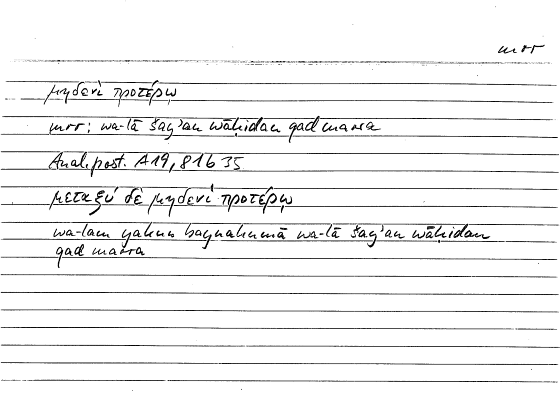 mrr
μηδενὶ προτέρῳ
mrr; wa-lā šayʾan wāḥidan qad marra
Anal. post. A19, 81b35
μεταξύ δὲ μηδενὶ προτέρῳ
wa-lam yakun baynahumā wa-lā šayʾan wāḥidan
qad marra